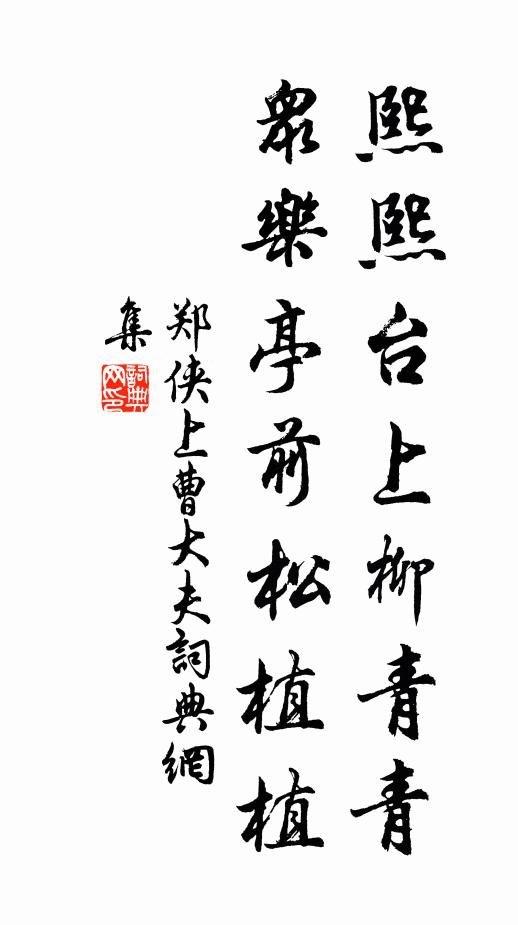 熙熙台上柳青青
衆樂亭前松植植
郑侠上曹大夫詞典網
集
詞典网印